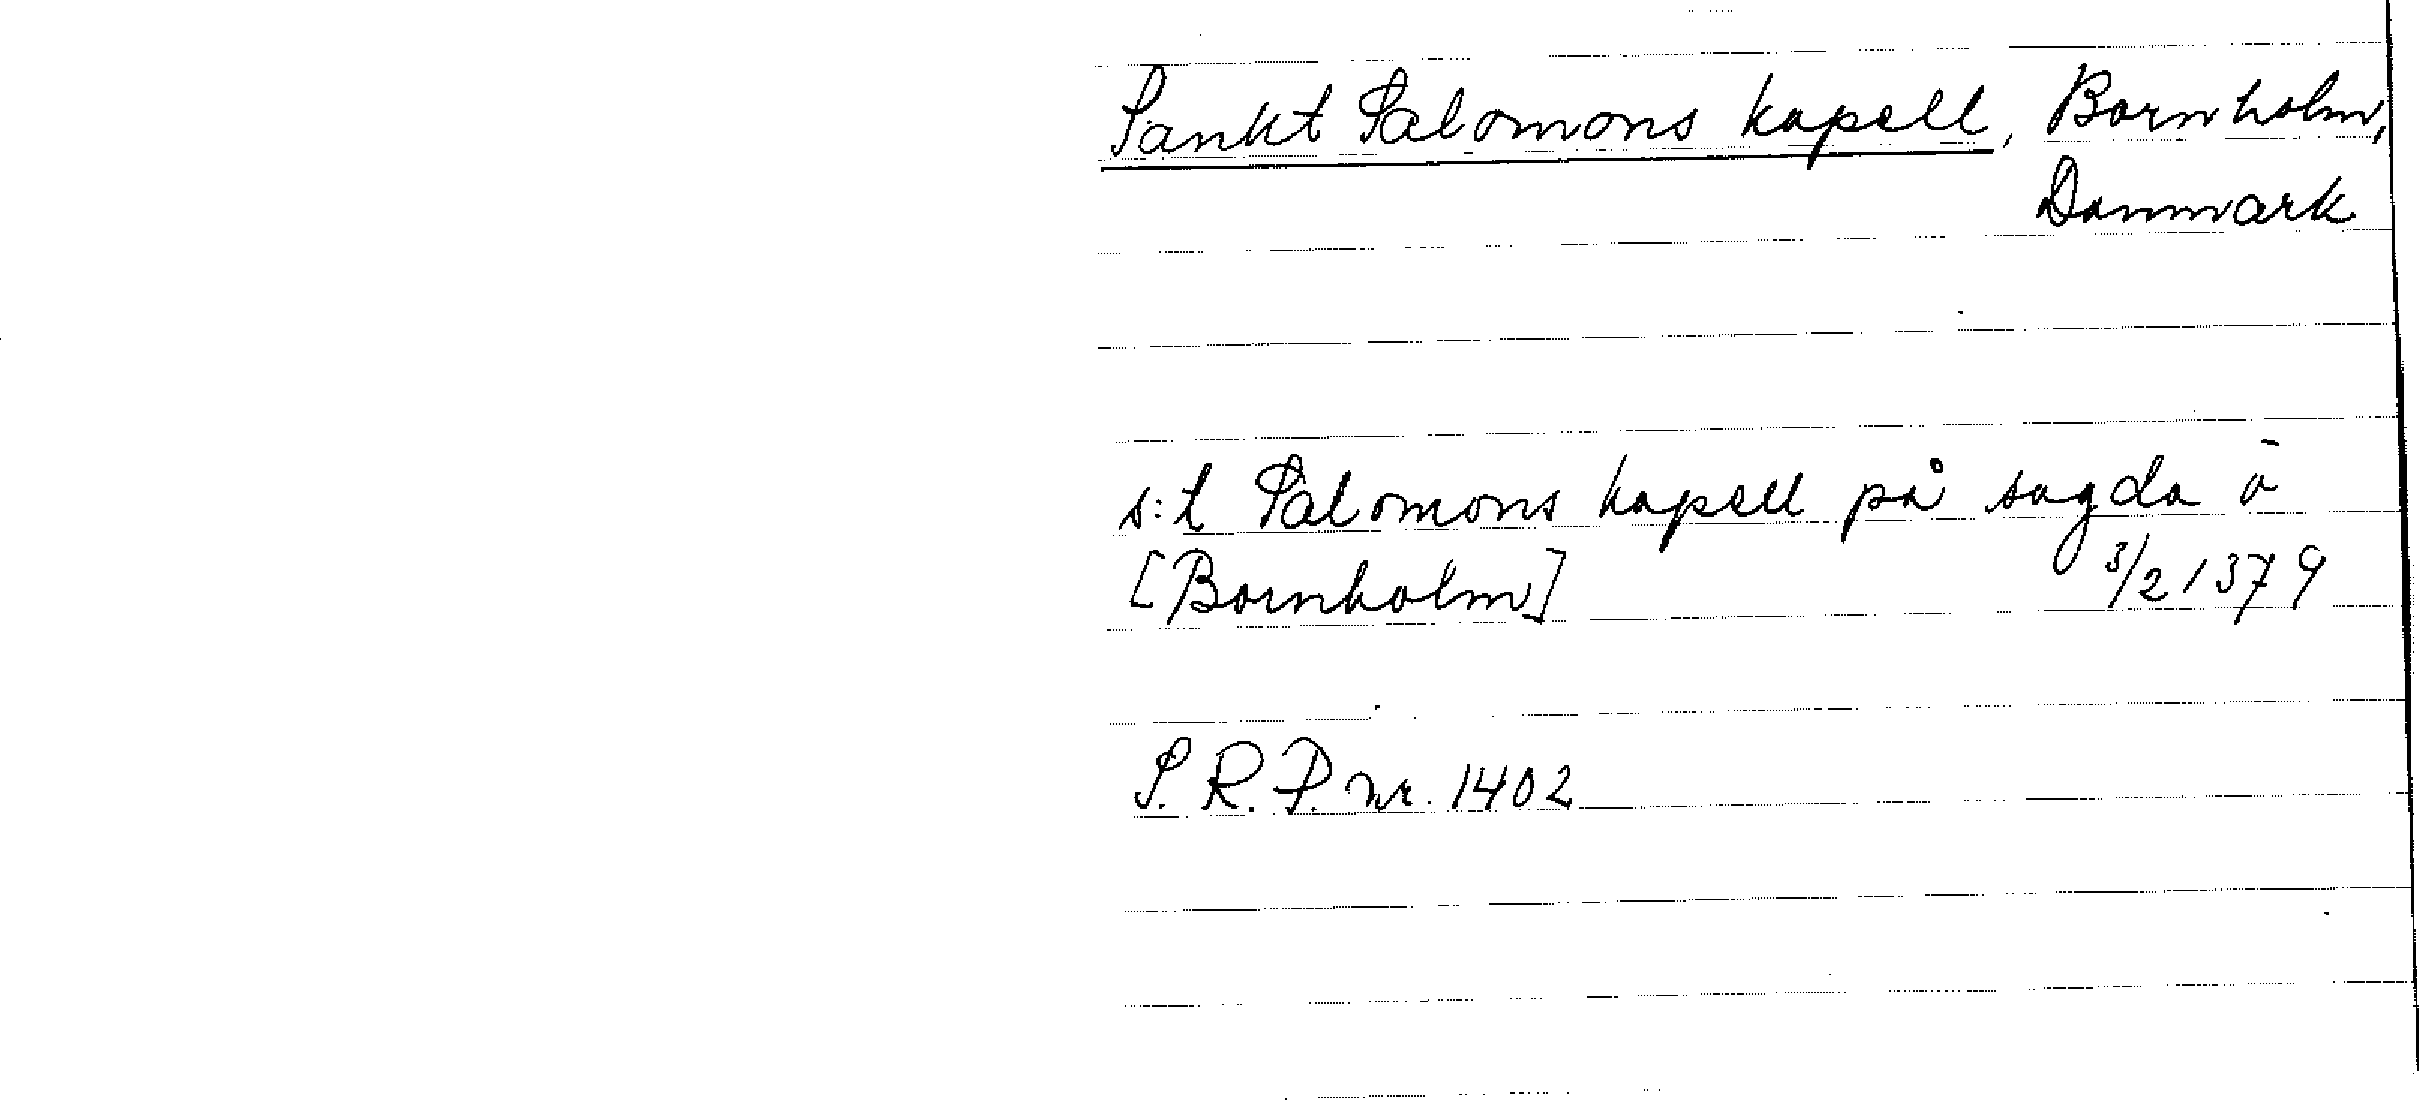 Sankt Salomons kapell, Bornholm,
Danmark
s:t Salomons kapell på sagda ö
[Bornholm] 3/2 1379
S.R.P. nr. 1402